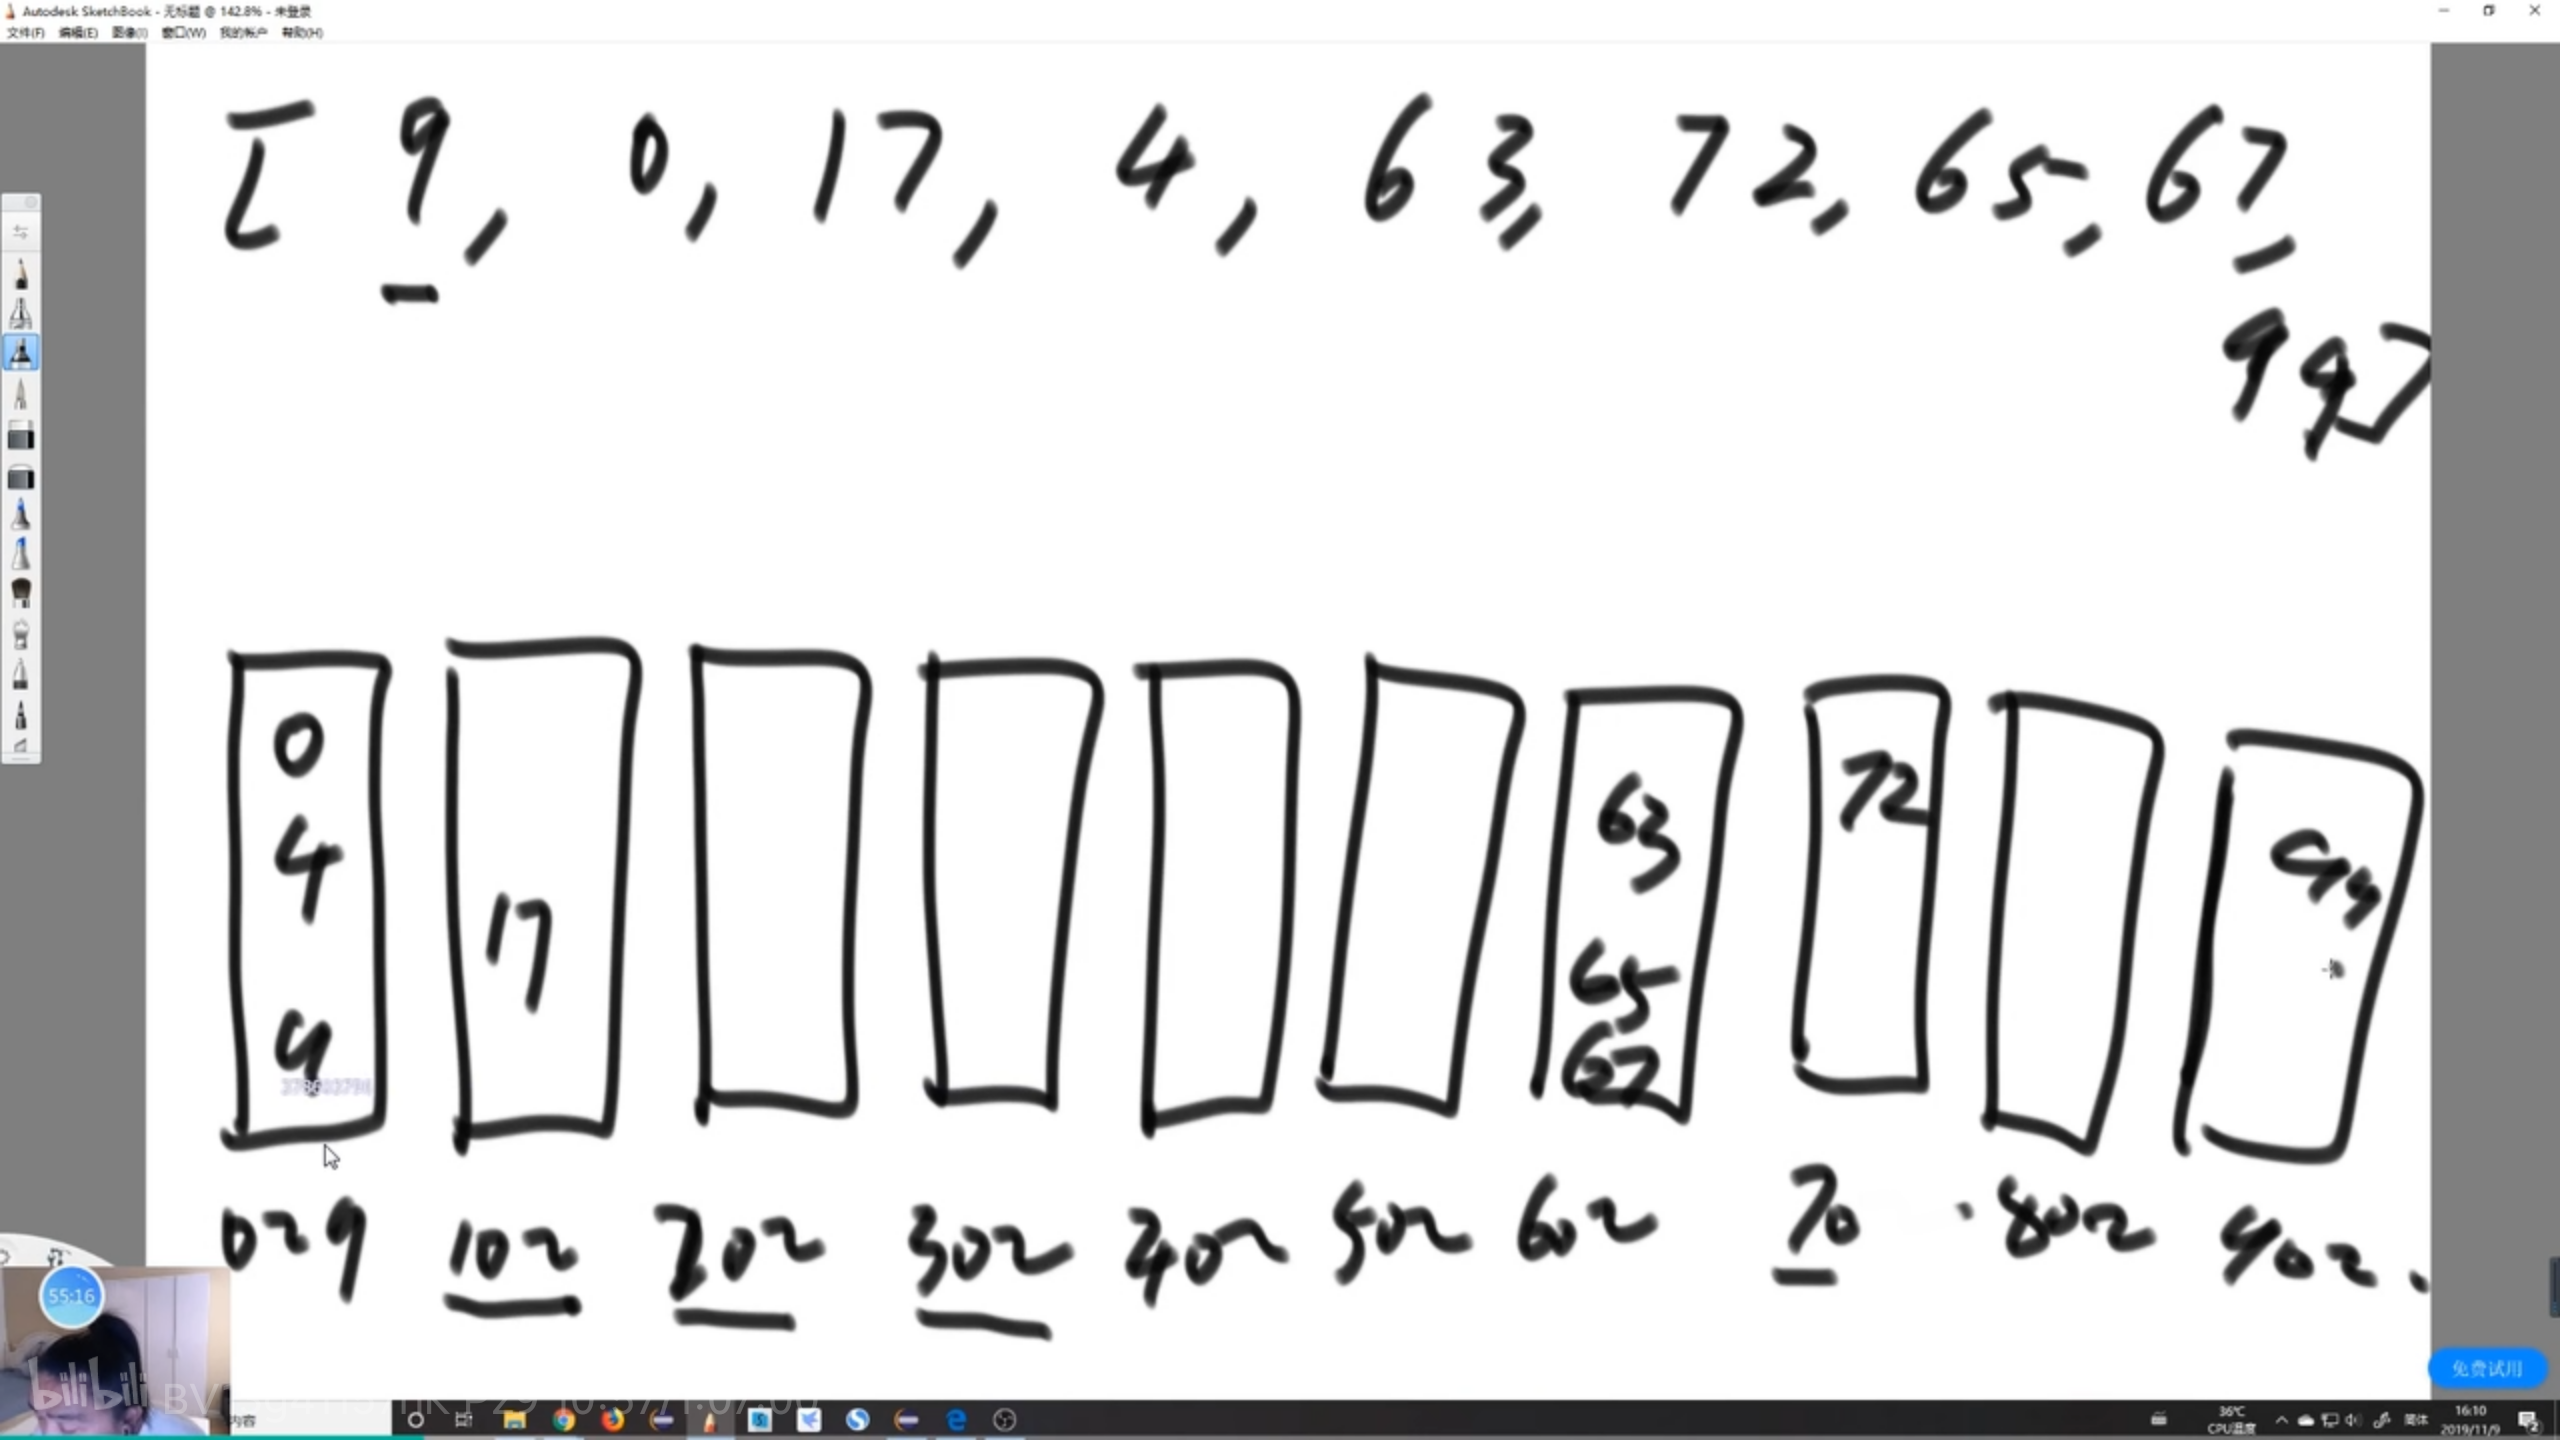 Autodesk SketchBook - 无标题 @ 142.8% - 未登录
文件(F) 编辑(E) 图像(I) 窗口(W) 我的帐户 帮助(H)
[ 9, 0, 17, 4, 63, 72, 65, 67,
99]
0
4
9
17
63
65
67
72
99
0~9 10~ 20~ 30~ 40~ 50~ 60~ 70 80~ 90~
55:16
免费试用
bilibili
内容
36℃
CPU温度
简体
16:10
2019/11/9
2